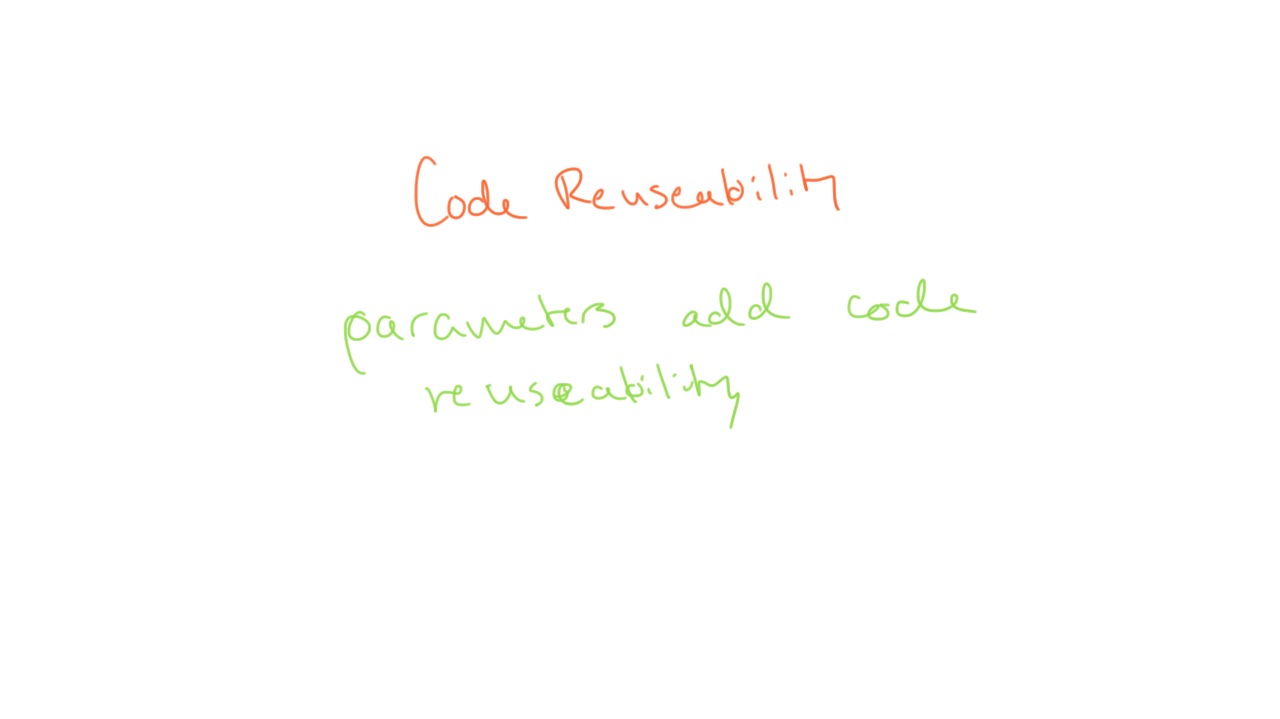 Code Reuseability
parameters add code
reuseability